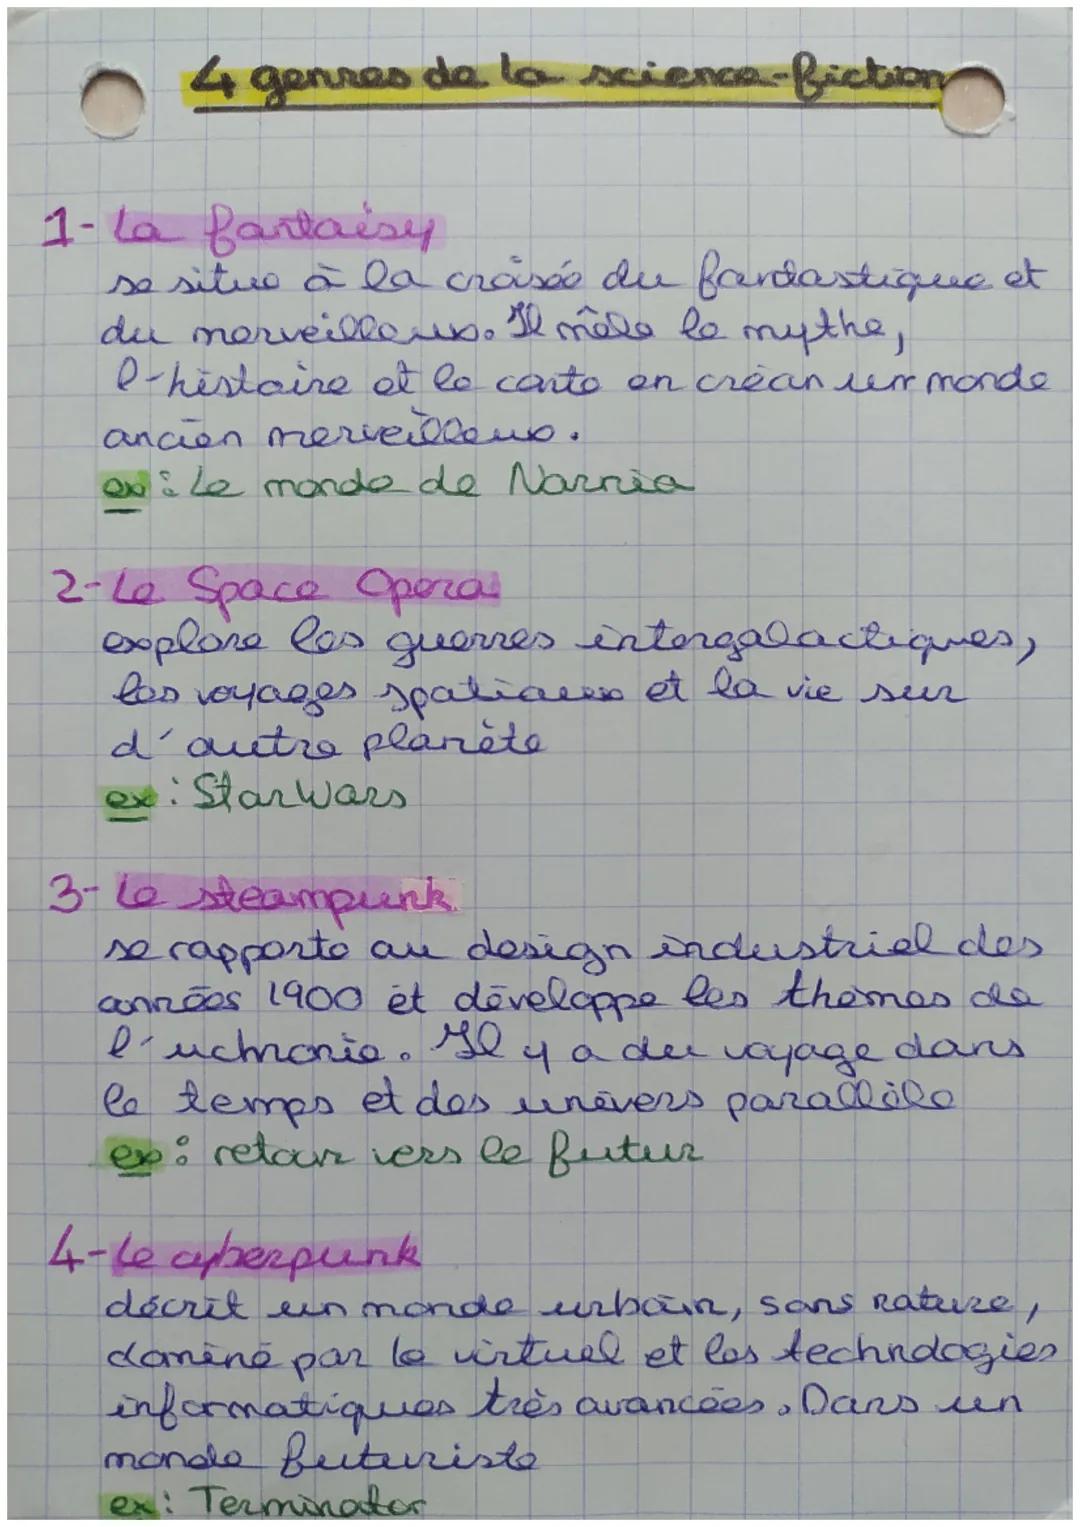 4 genres de la science-fiction
1- La fantaisy
se situe à la croisée du fantastique et
du merveilleux. Il mêle le mythe,
l-histoire et le conte en créan un monde
ancien merveilleux.
ex : Le monde de Narnia
2- Le Space Opera
explore les guerres intergalactiques,
les voyages spatiaux et la vie sur
d'autre planète
ex : Star Wars
3- Le steampunk
se rapporte au design industriel des
années 1900 et développe les thèmes de
l'uchronie. Il y a du voyage dans
le temps et des univers parallèle
ex : retour vers le futur
4- Le cyberpunk
décrit un monde urbain, sans nature,
dominé par le virtuel et les technologies
informatiques très avancées. Dans un
monde futuriste
ex : Terminator